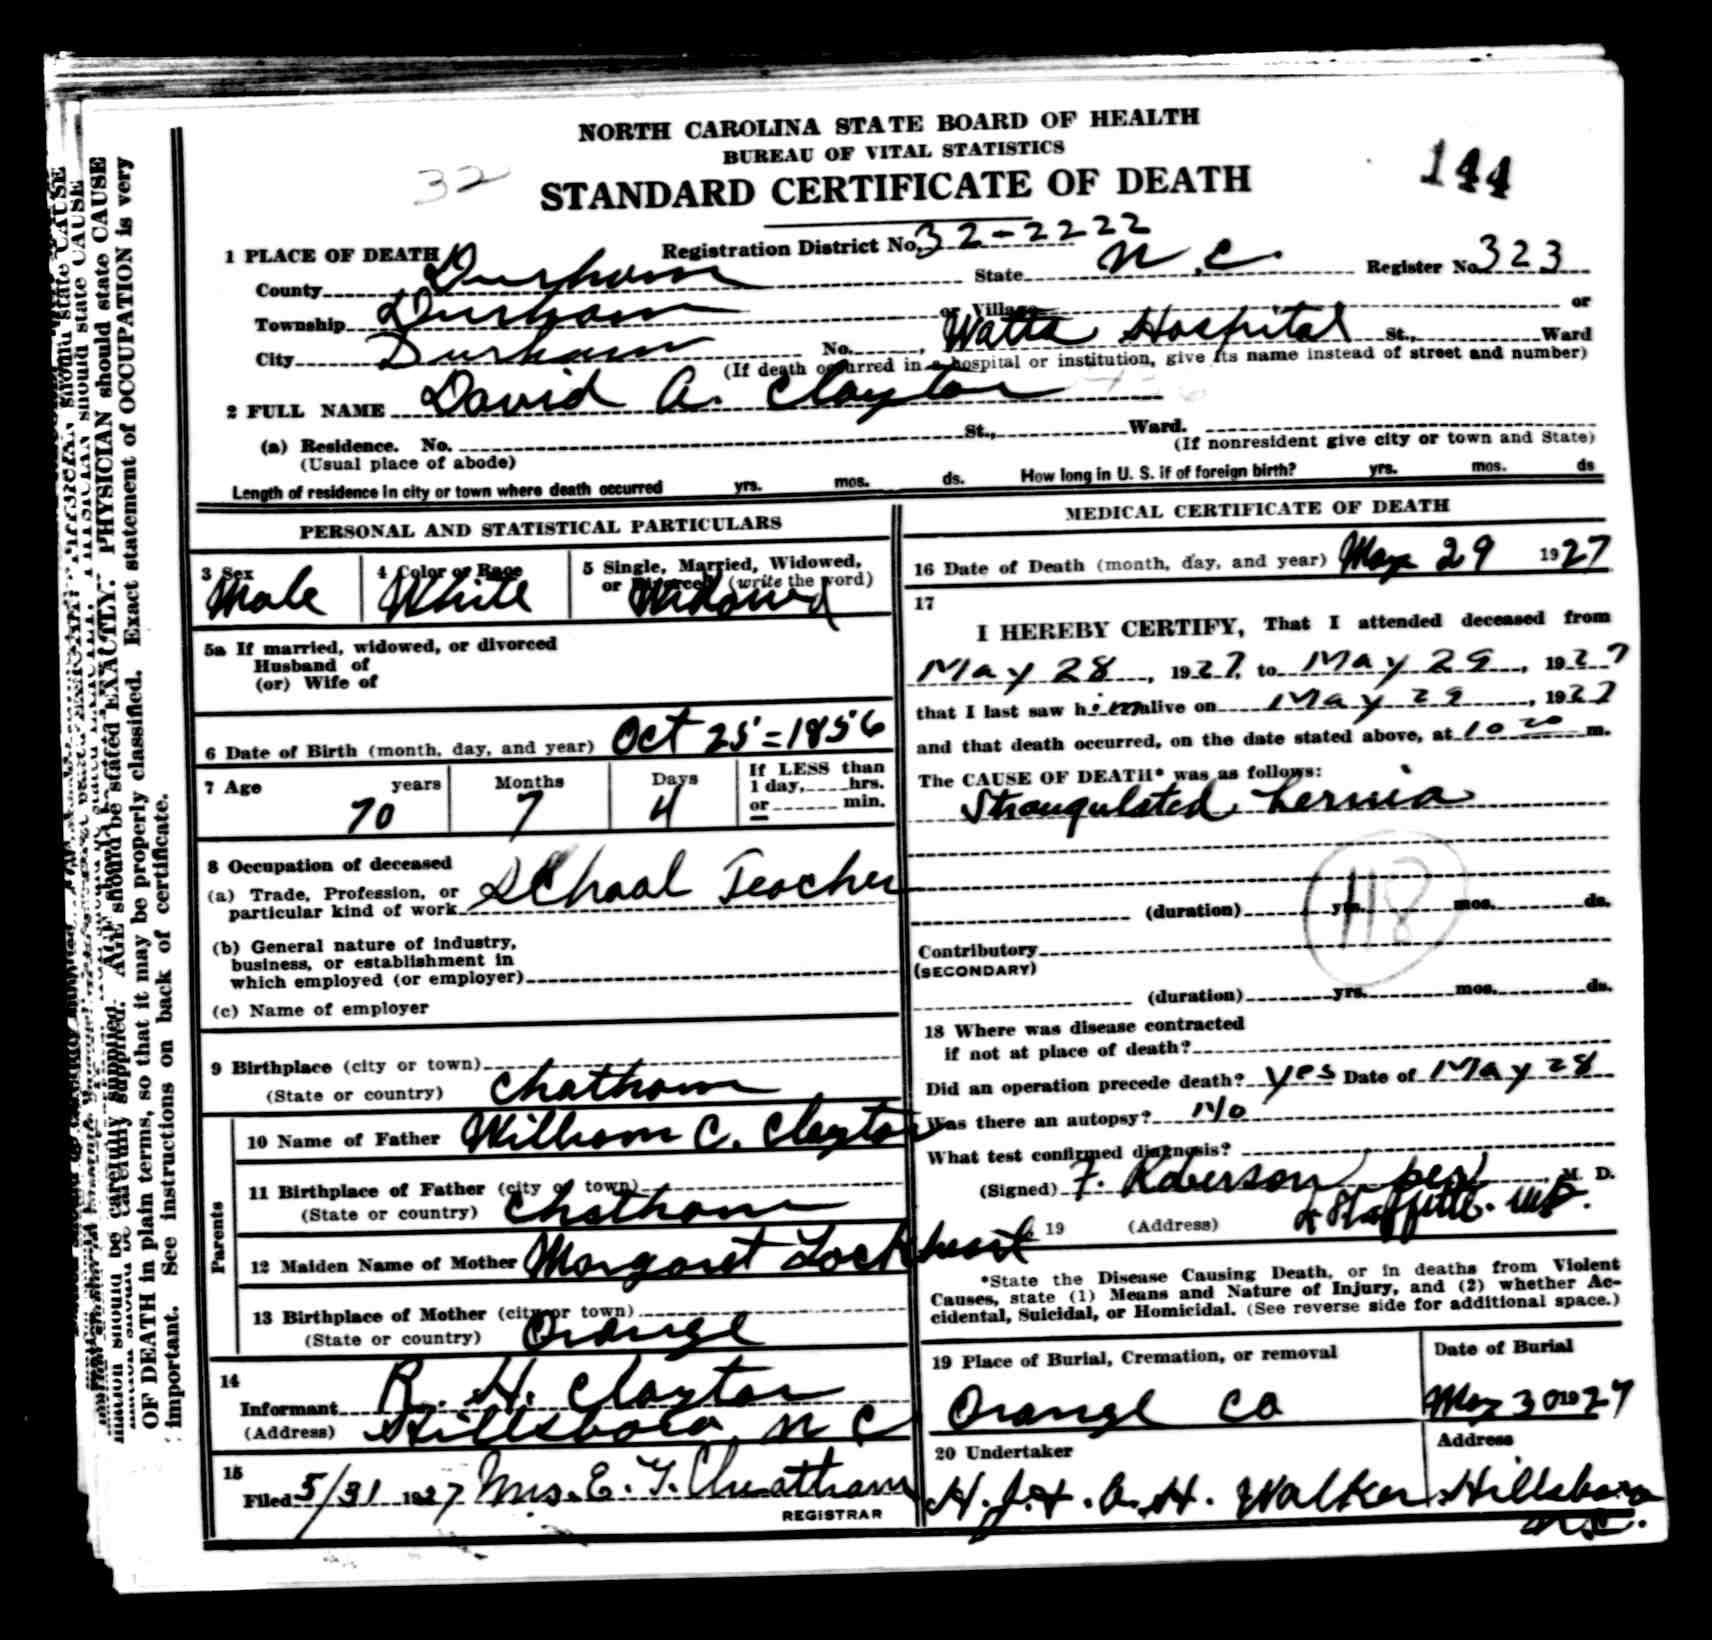 NORTH CAROLINA STATE BOARD OF HEALTH
BUREAU OF VITAL STATISTICS
32
STANDARD CERTIFICATE OF DEATH
144
1 PLACE OF DEATH Registration District No. 32-2222
County Durham State N.C. Register No. 323
Township Durham or Village or
City Durham No. , Watts Hospital St., Ward
(If death occurred in a hospital or institution, give its name instead of street and number)
2 FULL NAME David A. Clayton
(a) Residence. No. St., Ward.
(Usual place of abode) (If nonresident give city or town and State)
Length of residence in city or town where death occurred yrs. mos. ds. How long in U. S. if of foreign birth? yrs. mos. ds
PERSONAL AND STATISTICAL PARTICULARS
3 Sex 4 Color or Race 5 Single, Married, Widowed,
or Divorced (write the word)
Male White Widowed
5a If married, widowed, or divorced
Husband of
(or) Wife of
6 Date of Birth (month, day, and year) Oct 25 = 1856
7 Age years Months Days If LESS than
1 day, hrs.
or min.
70 7 4
8 Occupation of deceased
(a) Trade, Profession, or
particular kind of work School Teacher
(b) General nature of industry,
business, or establishment in
which employed (or employer)
(c) Name of employer
9 Birthplace (city or town)
(State or country) Chatham
Parents
10 Name of Father William C. Clayton
11 Birthplace of Father (city or town)
(State or country) Chatham
12 Maiden Name of Mother Margaret Lockheart
13 Birthplace of Mother (city or town)
(State or country) Orange
14
Informant R. H. Clayton
(Address) Hillsboro, N C
15
Filed 5/31 1927 Mrs. E. T. Cheatham
REGISTRAR
MEDICAL CERTIFICATE OF DEATH
16 Date of Death (month, day, and year) May 29 1927
17
I HEREBY CERTIFY, That I attended deceased from
May 28, 1927, to May 29, 1927
that I last saw him alive on May 29, 1927
and that death occurred, on the date stated above, at 10 20 m.
The CAUSE OF DEATH* was as follows:
Strangulated hernia
118
(duration) yrs. mos. ds.
Contributory
(SECONDARY)
(duration) yrs. mos. ds.
18 Where was disease contracted
if not at place of death?
Did an operation precede death? Yes Date of May 28
Was there an autopsy? No
What test confirmed diagnosis?
(Signed) F. Roberson per M. D.
19 (Address)
*State the Disease Causing Death, or in deaths from Violent
Causes, state (1) Means and Nature of Injury, and (2) whether Ac-
cidental, Suicidal, or Homicidal. (See reverse side for additional space.)
19 Place of Burial, Cremation, or removal Date of Burial
Orange Co May 30 1927
20 Undertaker Address
H. J. + A. H. Walker Hillsboro
N.C.
should be carefully supplied. AGE should be stated EXACTLY. PHYSICIAN should state CAUSE
OF DEATH in plain terms, so that it may be properly classified. Exact statement of OCCUPATION is very
important. See instructions on back of certificate.